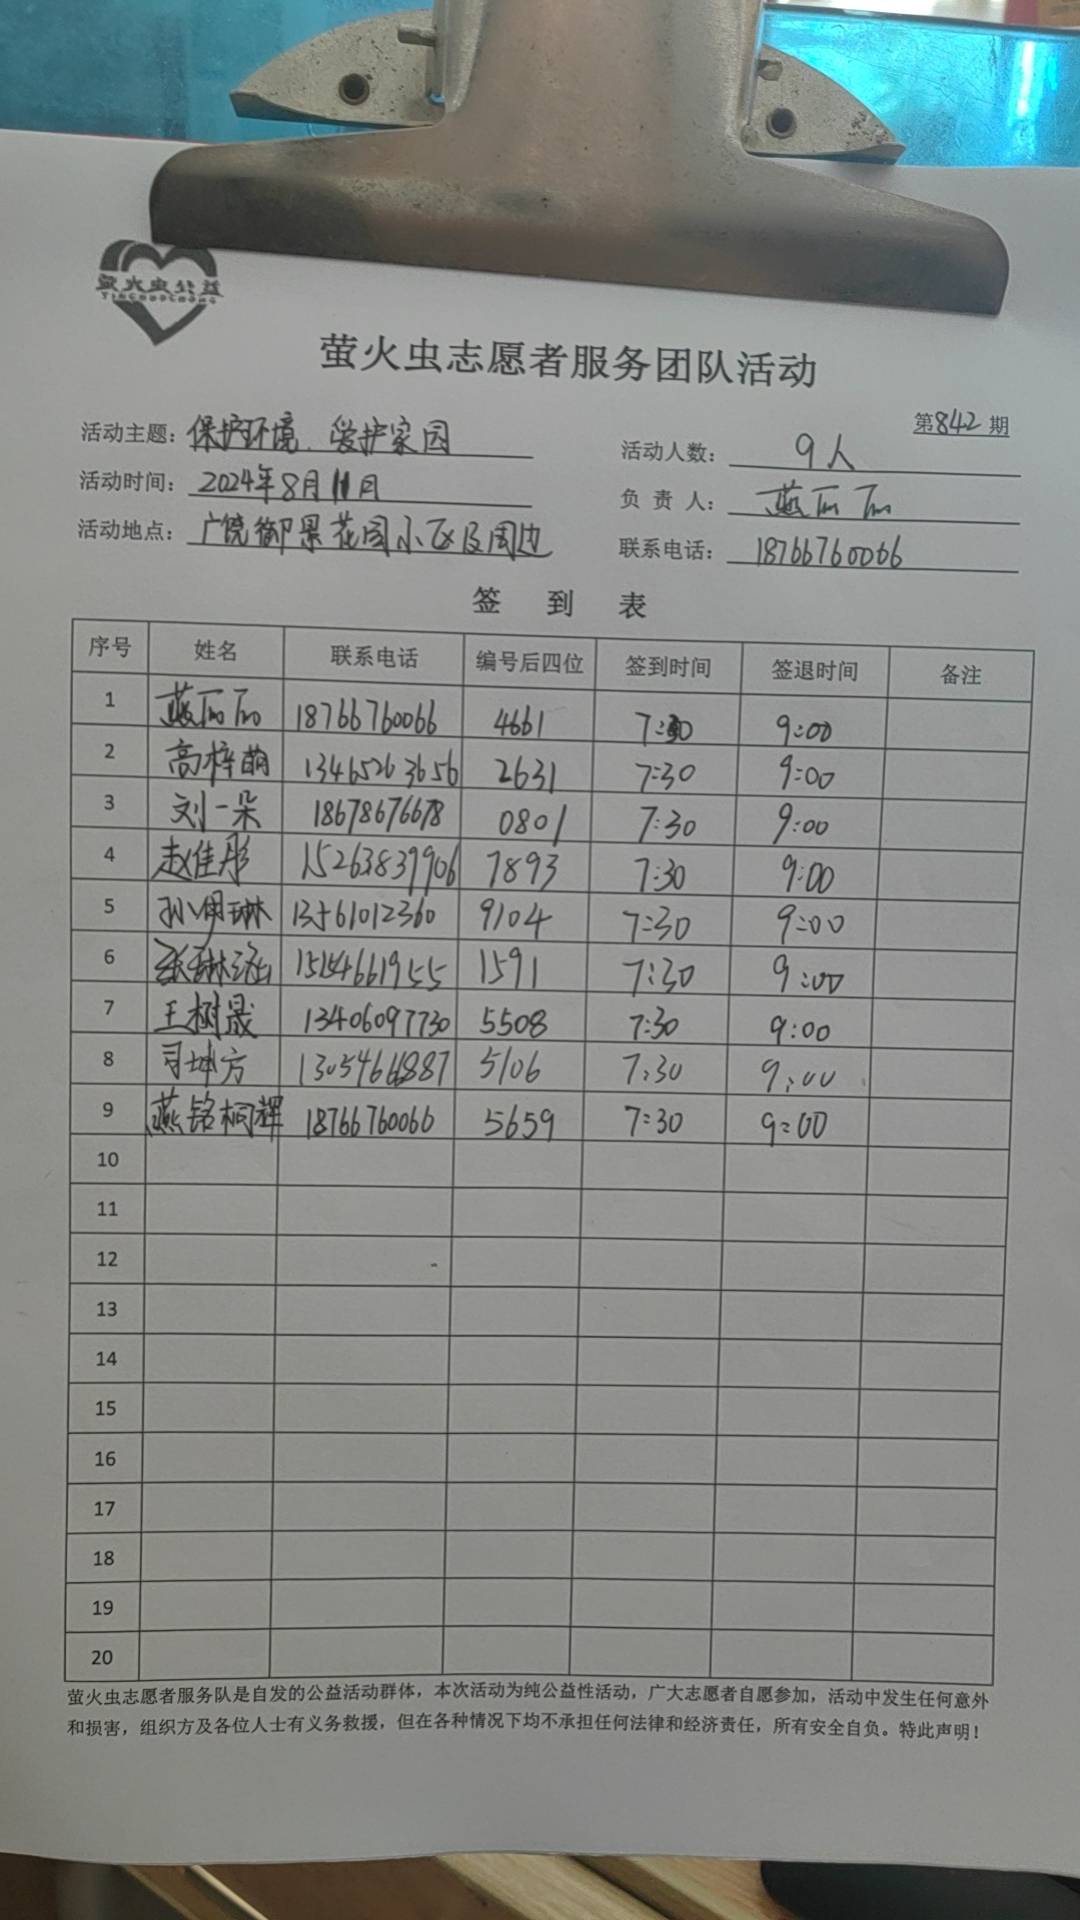 萤火虫公益
YINGHUOCHONG
萤火虫志愿者服务团队活动
第842期
活动主题：保护环境、爱护家园
活动人数：9人
活动时间：2024年8月11日
负责人：燕丽丽
活动地点：广饶御景花园小区及周边
联系电话：18766760066
签到表
序号 姓名 联系电话 编号后四位 签到时间 签退时间 备注
1 燕丽丽 18766760066 4661 7:30 9:00
2 高梓萌 13465263656 2631 7:30 9:00
3 刘一朵 18678676678 0801 7:30 9:00
4 赵佳彤 15263839906 7893 7:30 9:00
5 13561012360 9104 7:30 9:00
6 张琳涵 15154661955 1591 7:30 9:00
7 王树晟 13406097730 5508 7:30 9:00
8 司坤方 13054666887 5106 7:30 9:00
9 燕铭桐辉 18766760066 5659 7:30 9:00
10
11
12
13
14
15
16
17
18
19
20
萤火虫志愿者服务队是自发的公益活动群体，本次活动为纯公益性活动，广大志愿者自愿参加，活动中发生任何意外
和损害，组织方及各位人士有义务救援，但在各种情况下均不承担任何法律和经济责任，所有安全自负。特此声明！